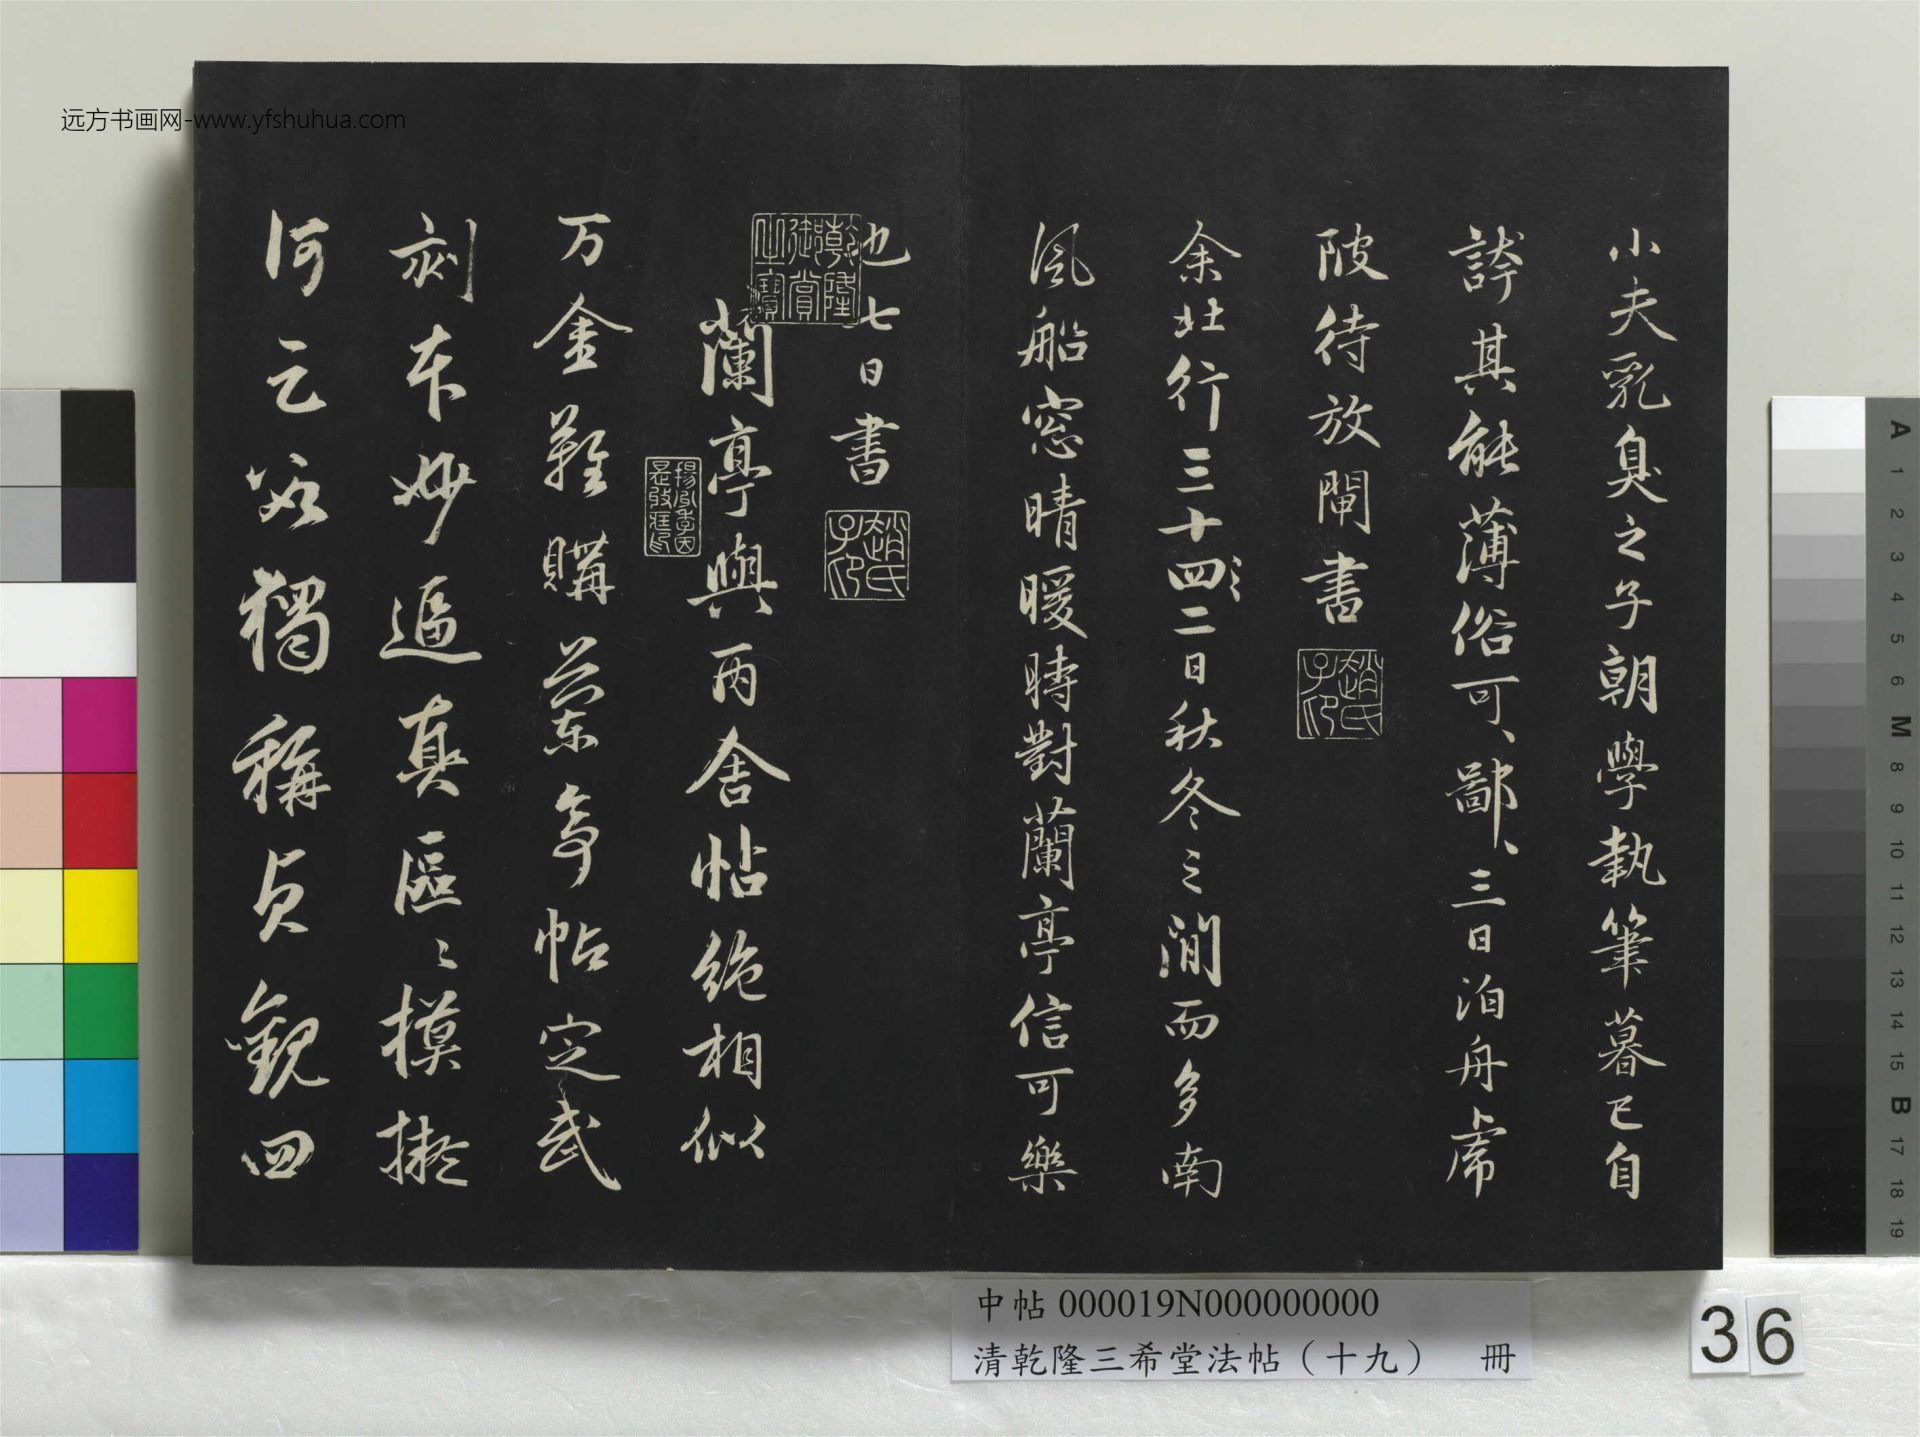 远方书画网-www.yfshuhua.com
小夫乳臭之子朝學執筆暮已自
誇其能薄俗可、鄙、三日泊舟虎
陂待放閘書
趙氏子印
余北行三十四二日秋冬之間而多南
風船窓晴暖時對蘭亭信可樂
也七日書
趙氏子印
乾隆御賞之寶
蘭亭與丙舍帖絶相似
万金難購蘭亭帖定武
刻本妙逼真區〻摸擬
何獨稱貞觀四
中帖 000019N000000000
清乾隆三希堂法帖（十九） 冊
36
A 1 2 3 4 5 6 M 8 9 10 11 12 13 14 15 B 17 18 19